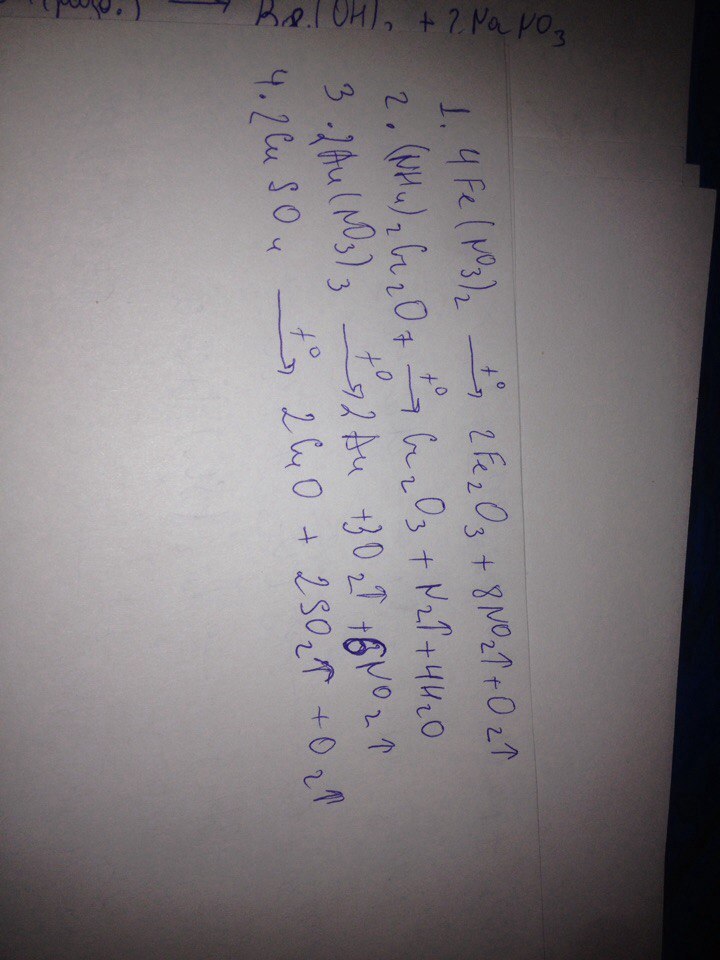 → Be(OH)₂ + 2NaNO₃
1. 4Fe(NO₃)₂ —t°→ 2Fe₂O₃ + 8NO₂↑ + O₂↑
2. (NH₄)₂Cr₂O₇ —t°→ Cr₂O₃ + N₂↑ + 4H₂O
3. 2Au(NO₃)₃ —t°→ 2Au + 3O₂↑ + 6NO₂↑
4. 2CuSO₄ —t°→ 2CuO + 2SO₂↑ + O₂↑